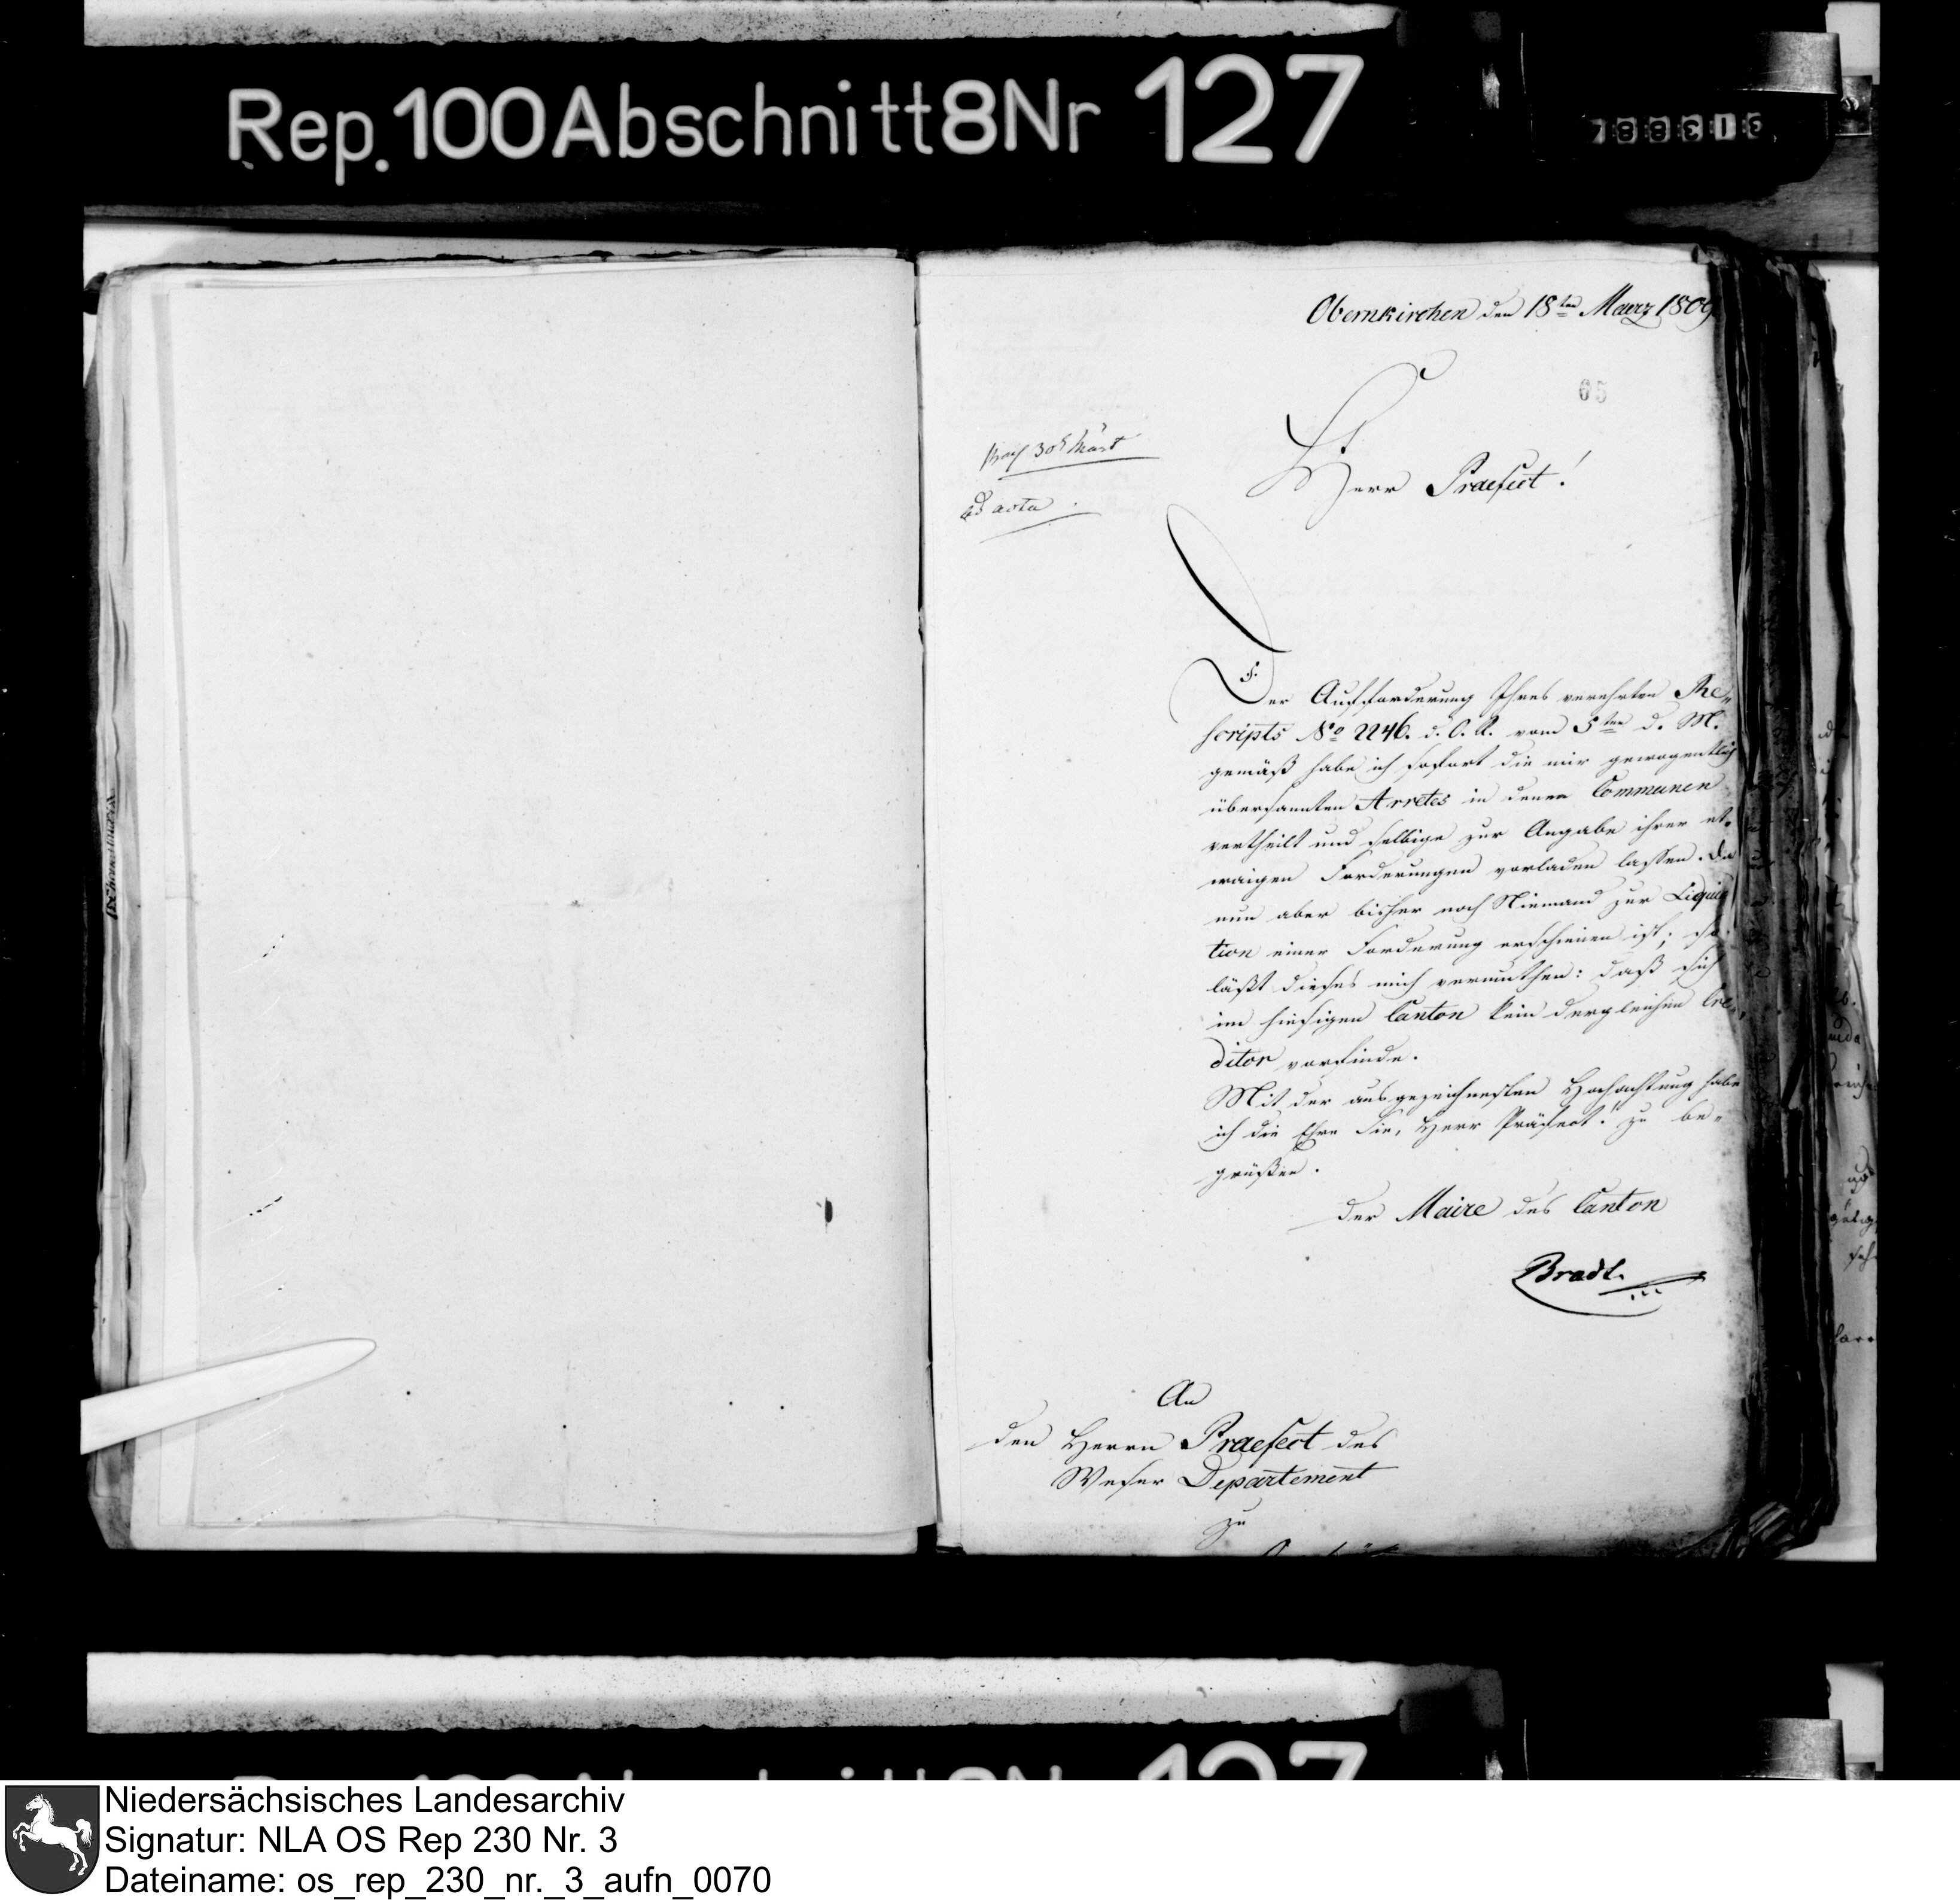 Rep. 100 Abschnitt 8 Nr 127
Obernkirchen den 18ten Maerz 1809
65
Herr Praefect!
30t März
ad acta.
Der Aufforderung Ihres verehrten Re-
scripts No 2246. d. O. A. vom 5ten d. M.
gemäß habe ich sofort die mir gewogentlich
übersannten Arretes in denen Communen
vertheilt und selbige zur Angabe ihrer et-
waigen Forderungen vorladen lassen. Da
nun aber bisher noch Niemand zur Liquida
tion einer Forderung erschienen ist; so
läßt dieses mich vermuthen: daß sich
im hiesigen Canton kein dergleichen Cre-
ditor vorfinde.
Mit der ausgezeichnesten Hochachtung habe
ich die Ehre Sie, Herr Präfect! zu be-
grüßen.
Der Maire des Canton
Bradt.
An
den Herrn Praefect des
Weser Departement
zu
Niedersächsisches Landesarchiv
Signatur: NLA OS Rep 230 Nr. 3
Dateiname: os_rep_230_nr._3_aufn_0070